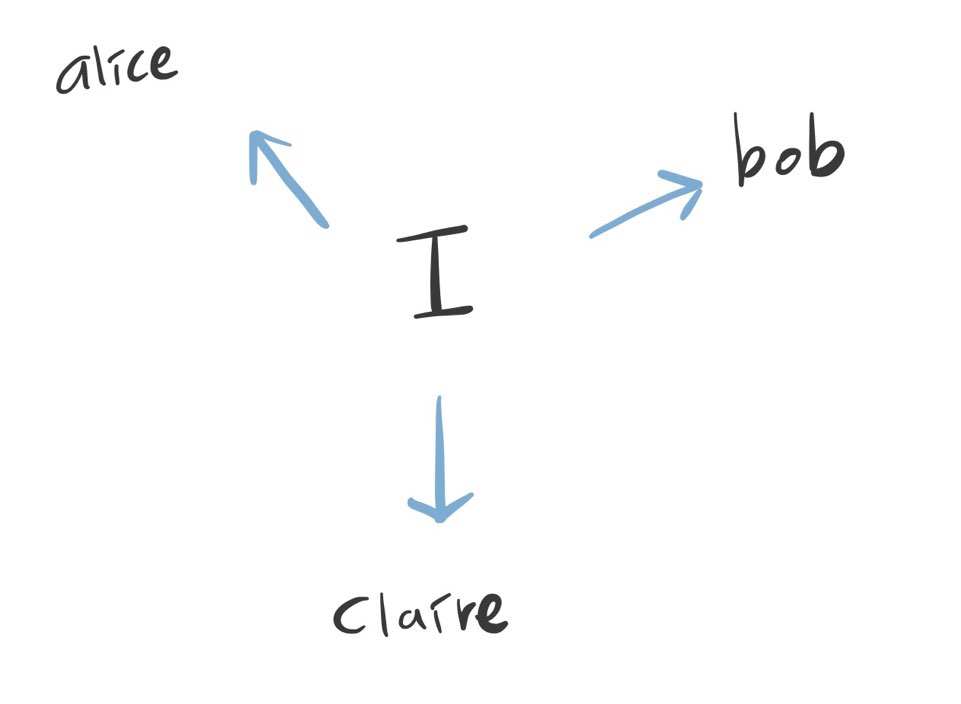 alice
bob
I
Claire